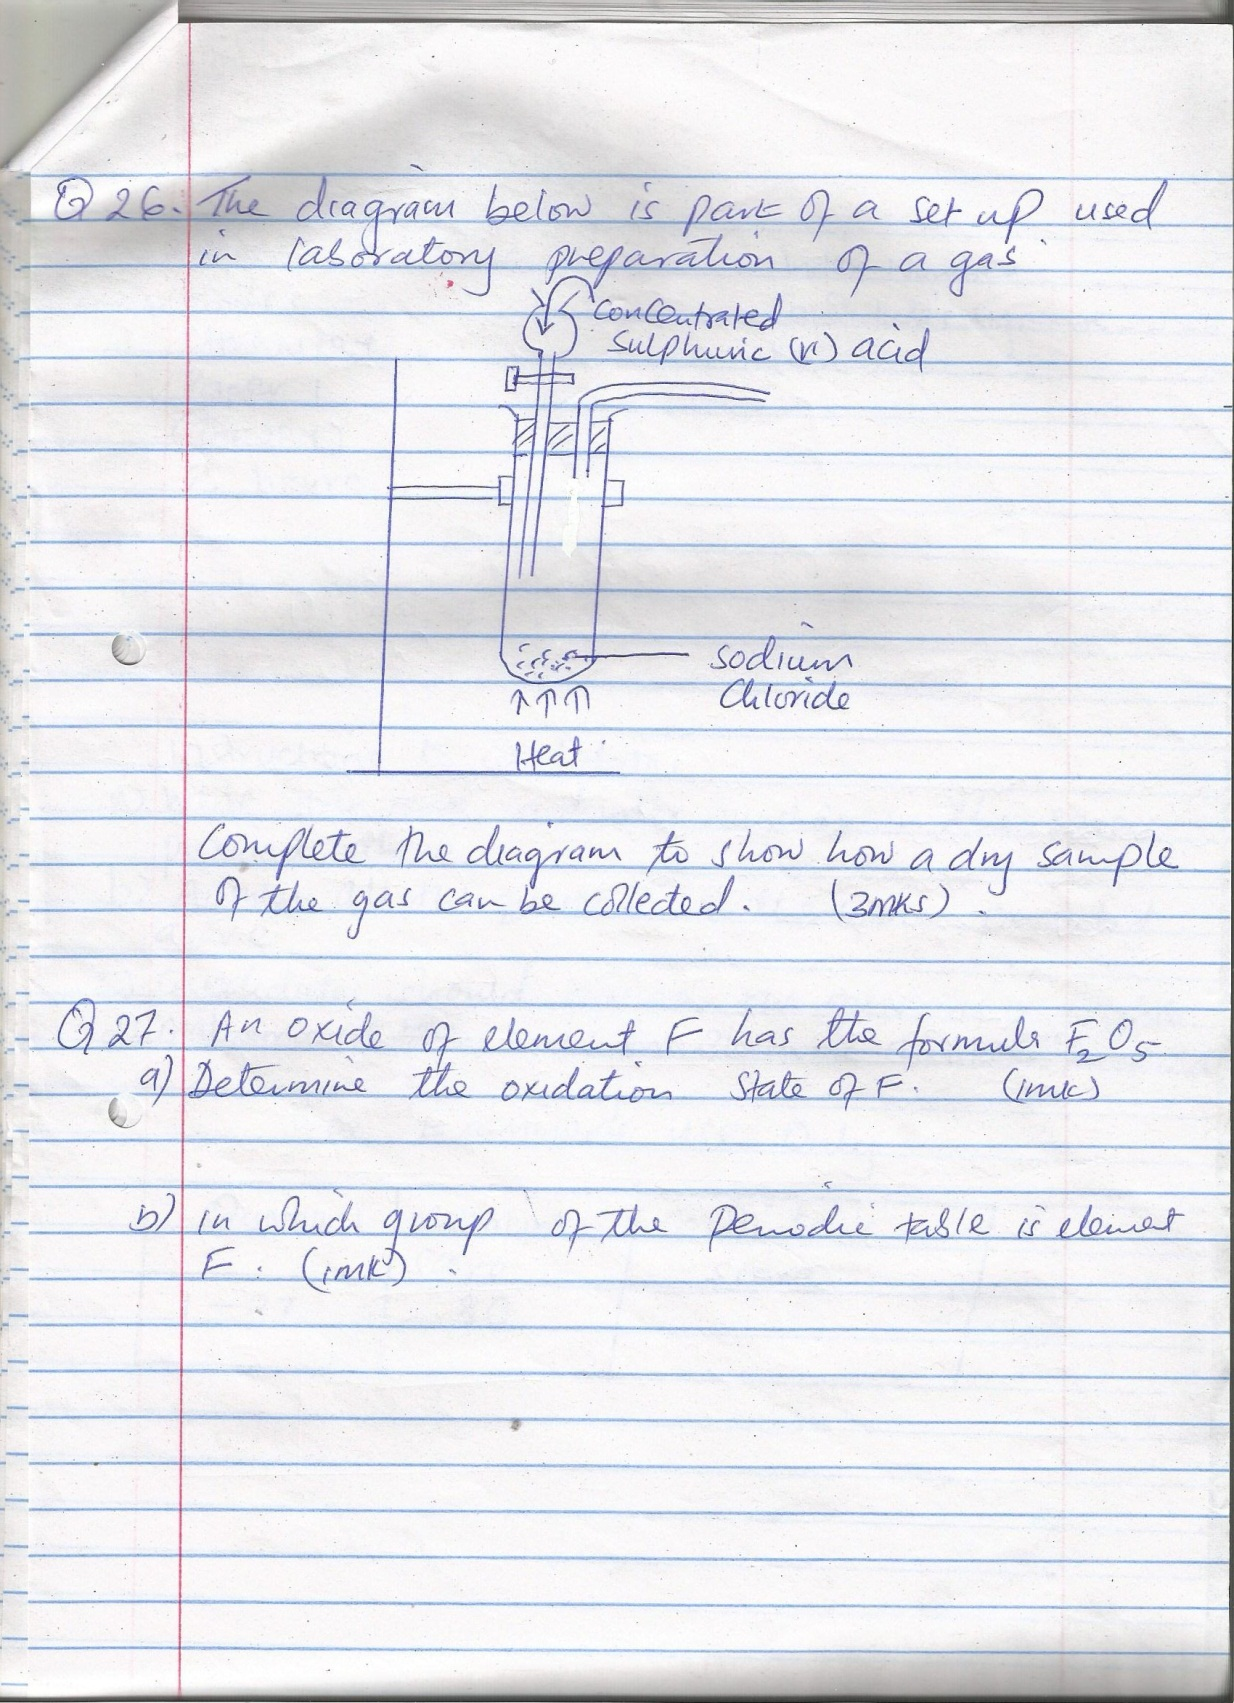 Q 26. The diagram below is part of a set up used
in laboratory preparation of a gas
Concentrated
Sulphuric (vi) acid
sodium
Chloride
Heat
Complete the diagram to show how a dry sample
of the gas can be collected. (3mks).
Q 27. An oxide of element F has the formula F₂O₅
a) Determine the oxidation state of F. (1mk)
b) in which group of the Periodic table is element
F. (1mk).